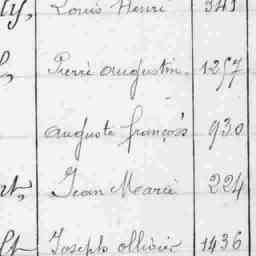 Louis Henri 341
Pierre Augustin. 1257
Auguste françois 930
Jean Marie 224
Joseph ollivier 1436